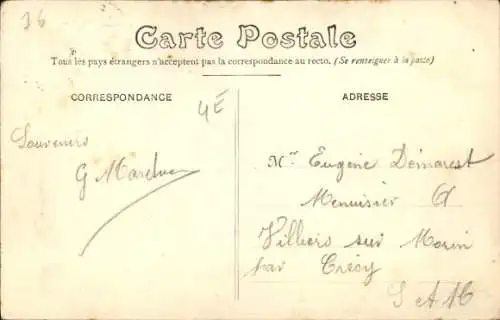 36
Carte Postale
Tous les pays étrangers n'acceptent pas la correspondance au recto. (Se renseigner à la poste)
CORRESPONDANCE
4E
ADRESSE
Souvenirs
G
Mr Eugène Démarest
Menuisier
Villiers sur Morin
par Crécy
S et M